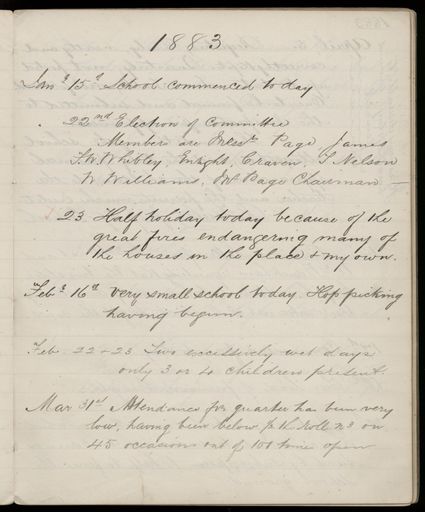 1883
Jany 15th School commenced today
22nd Election of Committee
Members are Messrs Page James
Whibley, Enright, Craven, T Nelson
W Williams, Mr Page Chairman —
23 Half holiday today because of the
great fires endangering many of
the houses in the place & my own.
Feby 16th very small school today Hop picking
having begun.
Feb 22 & 23 Two excessively wet days
only 3 or 4 children present
Mar 31st Attendance for quarter has been very
low, having been below the Roll no on
45 occasions out of 100 times open